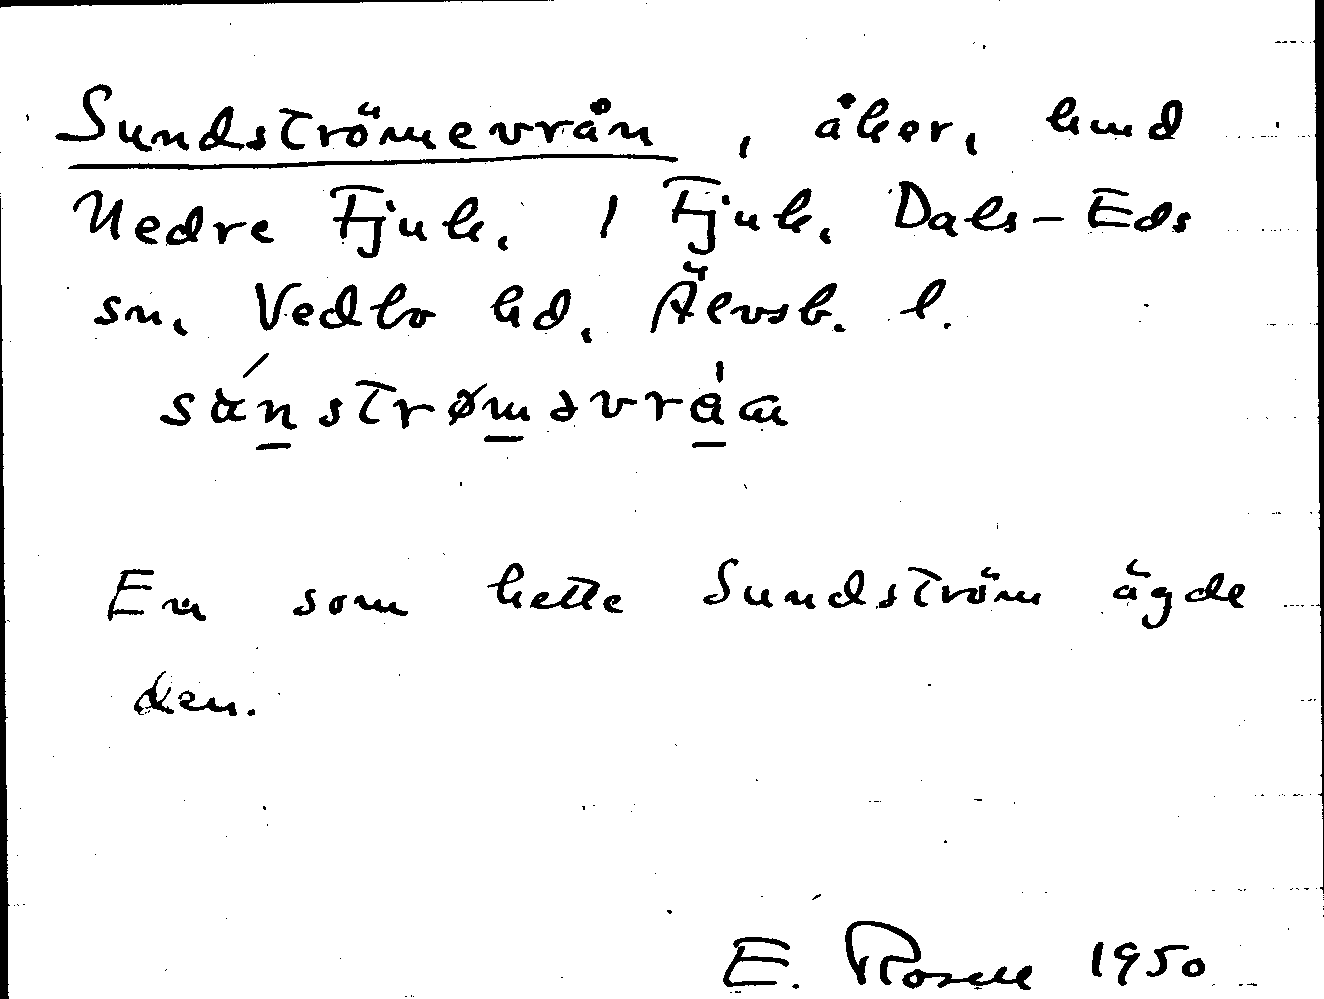 Sundströmevrån, åker, hmd
Nedre Fjuk, 1 Fjuk, Dals-Eds
sn, Vedbo hd, Älvsb. l.
En som hette Sundström ägde
den.
E. Rosell 1950